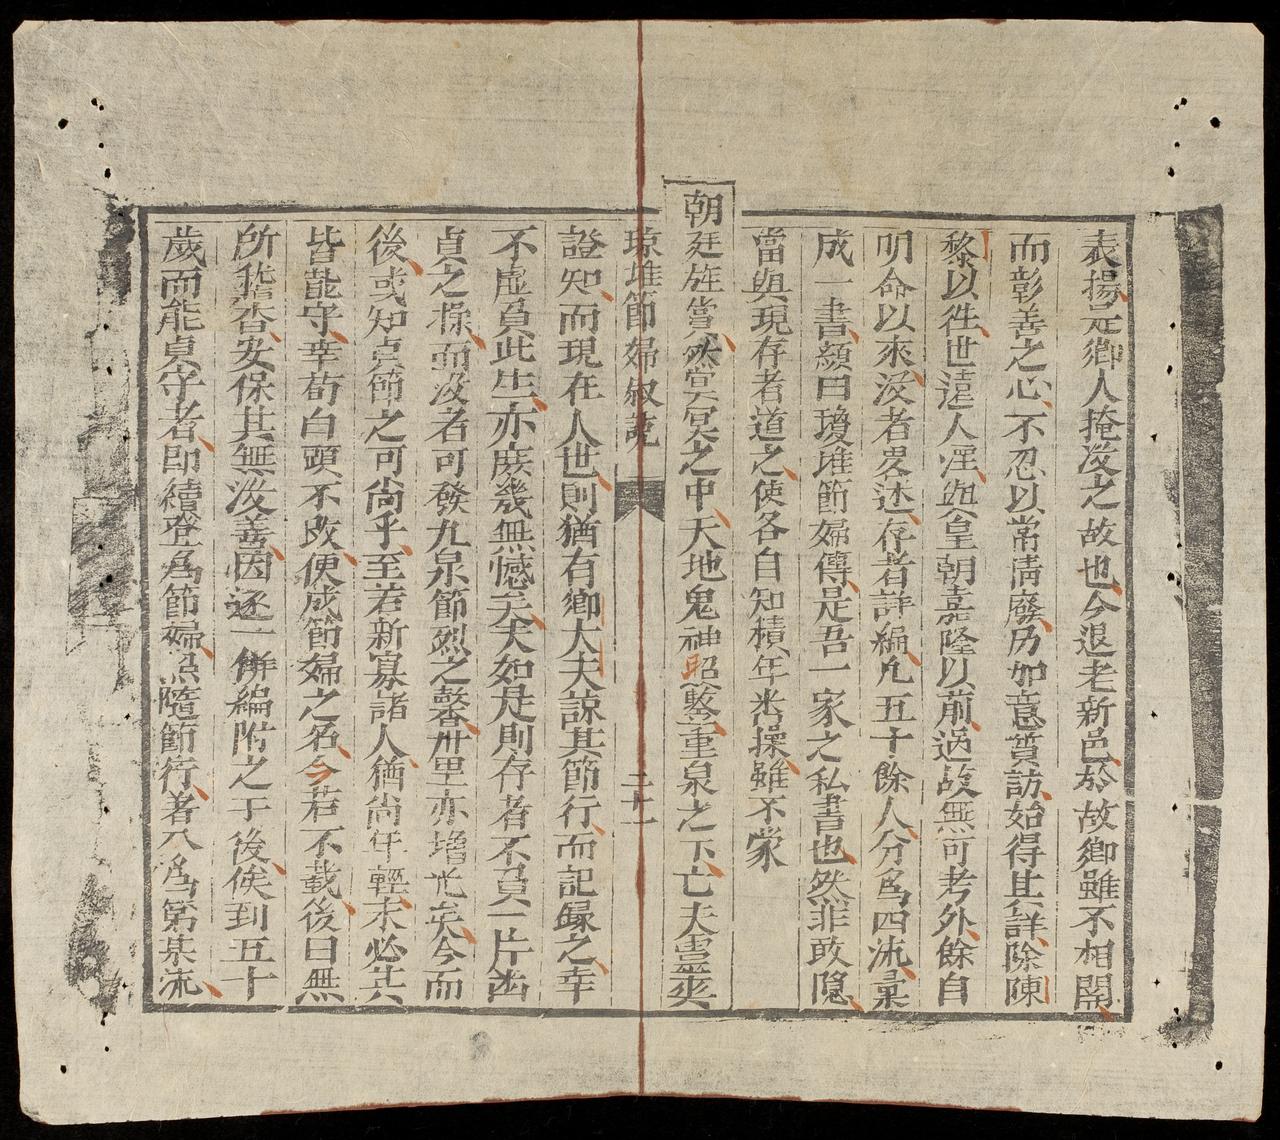 表揚元鄉人掩沒之故也今退老新邑於故鄉雖不相關
而彰善之心不忍以常情廢历加意質訪始得其詳除陳
黎以徃世遠人湮與皇朝嘉隆以前過故無可考外餘自
明命以來沒者畧述存者詳編凡五十餘人分爲四流彙
成一書顏曰瓊堆節婦傳是吾一家之私書也然非敢隱
當與現存者道之使各自知積年光操雖不蒙
朝廷旌嘗然冥冥之中天地鬼神昭鑒重泉之下亡夫靈爽
琼堆節婦叙説 二十一
證知而現在人世則猶有鄉大夫諒其節行而記録之幸
不虛負此生亦庶幾無憾矣夫如是則存者不負一片凾
貞之操而没者可發九泉節烈之馨卅里亦增光矣今而
後或知貞節之可尚乎至若新寡諸人猶尚年輕未必其
皆能守幸荀白頭不改便成節婦之名今若不載後日無
所稽查安保其無沒善因逐一併編附之于後俟到五十
歲而能貞守者即續登爲節婦照隨節行著入爲第某流